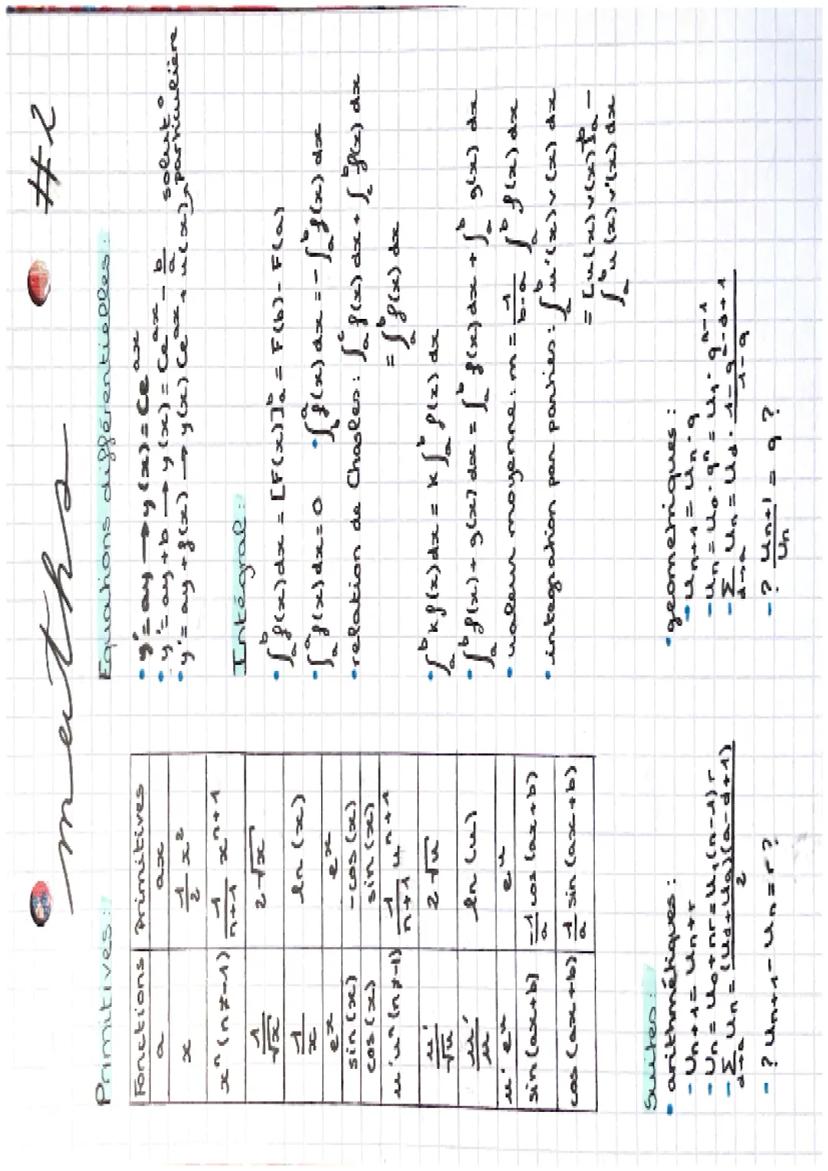 maths #2
Primitives:
Fonctions | Primitives
a | ax
x | 1/2 x²
xⁿ (n≠-1) | 1/(n+1) xⁿ⁺¹
1/√x | 2√x
1/x | ln(x)
eˣ | eˣ
sin(x) | -cos(x)
cos(x) | sin(x)
u'uⁿ(n≠-1) | 1/(n+1) uⁿ⁺¹
u'/√u | 2√u
u'/u | ln(u)
u'eᵘ | eᵘ
sin(ax+b) | -1/a cos(ax+b)
cos(ax+b) | 1/a sin(ax+b)
Equations différentielles:
• y'=ay → y(x) = Ceᵃˣ
• y'=ay+b → y(x) = Ceᵃˣ - b/a
• y'=ay+f(x) → y(x) Ceᵃˣ + u(x) → solut° particulière
Intégral:
• ∫ₐᵇ f(x)dx = [F(x)]ₐᵇ = F(b)-F(a)
• ∫ₐᵃ f(x)dx = 0 • ∫ᵇᵃ f(x)dx = -∫ₐᵇ f(x)dx
• relation de Chasles: ∫ₐᶜ f(x)dx + ∫ᶜᵇ f(x)dx
= ∫ₐᵇ f(x)dx
• ∫ₐᵇ kf(x)dx = k∫ₐᵇ f(x)dx
• ∫ₐᵇ f(x)+g(x)dx = ∫ₐᵇ f(x)dx + ∫ₐᵇ g(x)dx
• valeur moyenne: m = 1/(b-a) ∫ₐᵇ f(x)dx
• integration par parties: ∫ₐᵇ u'(x)v(x)dx
= [u(x)v(x)]ₐᵇ -
∫ₐᵇ u(x)v'(x)dx
Suites:
• arithmétiques:
- Uₙ₊₁ = Uₙ+r
- Uₙ = U₀+nr = U₁(n-1)r
- Σ d→a Uₙ = (Ud+Ua)(a-d+1)/2
- ? Uₙ₊₁ - Uₙ = r?
• geometriques:
- Uₙ₊₁ = Uₙ·q
- Uₙ = U₀·qⁿ = U₁·qⁿ⁻¹
- Σ d→a Uₙ = Ud · (1-qᵃ⁻ᵈ⁺¹)/(1-q)
- ? Uₙ₊₁/Uₙ = q ?